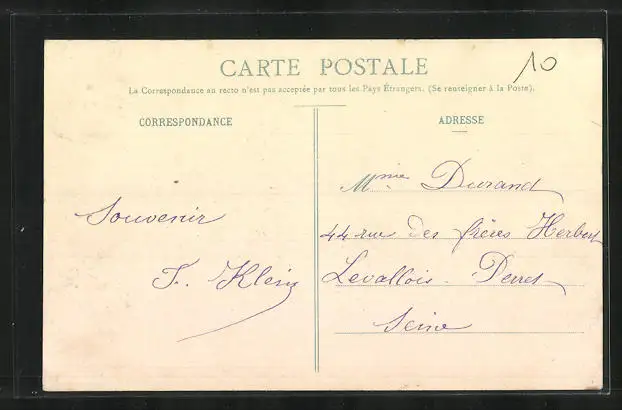 10
CARTE POSTALE
La Correspondance au recto n'est pas acceptée par tous les Pays Étrangers. (Se renseigner à la Poste).
CORRESPONDANCE
ADRESSE
Mme Durand
44 rue des frères Herbert
Levallois-Perret
Seine
Souvenir
F. Klein